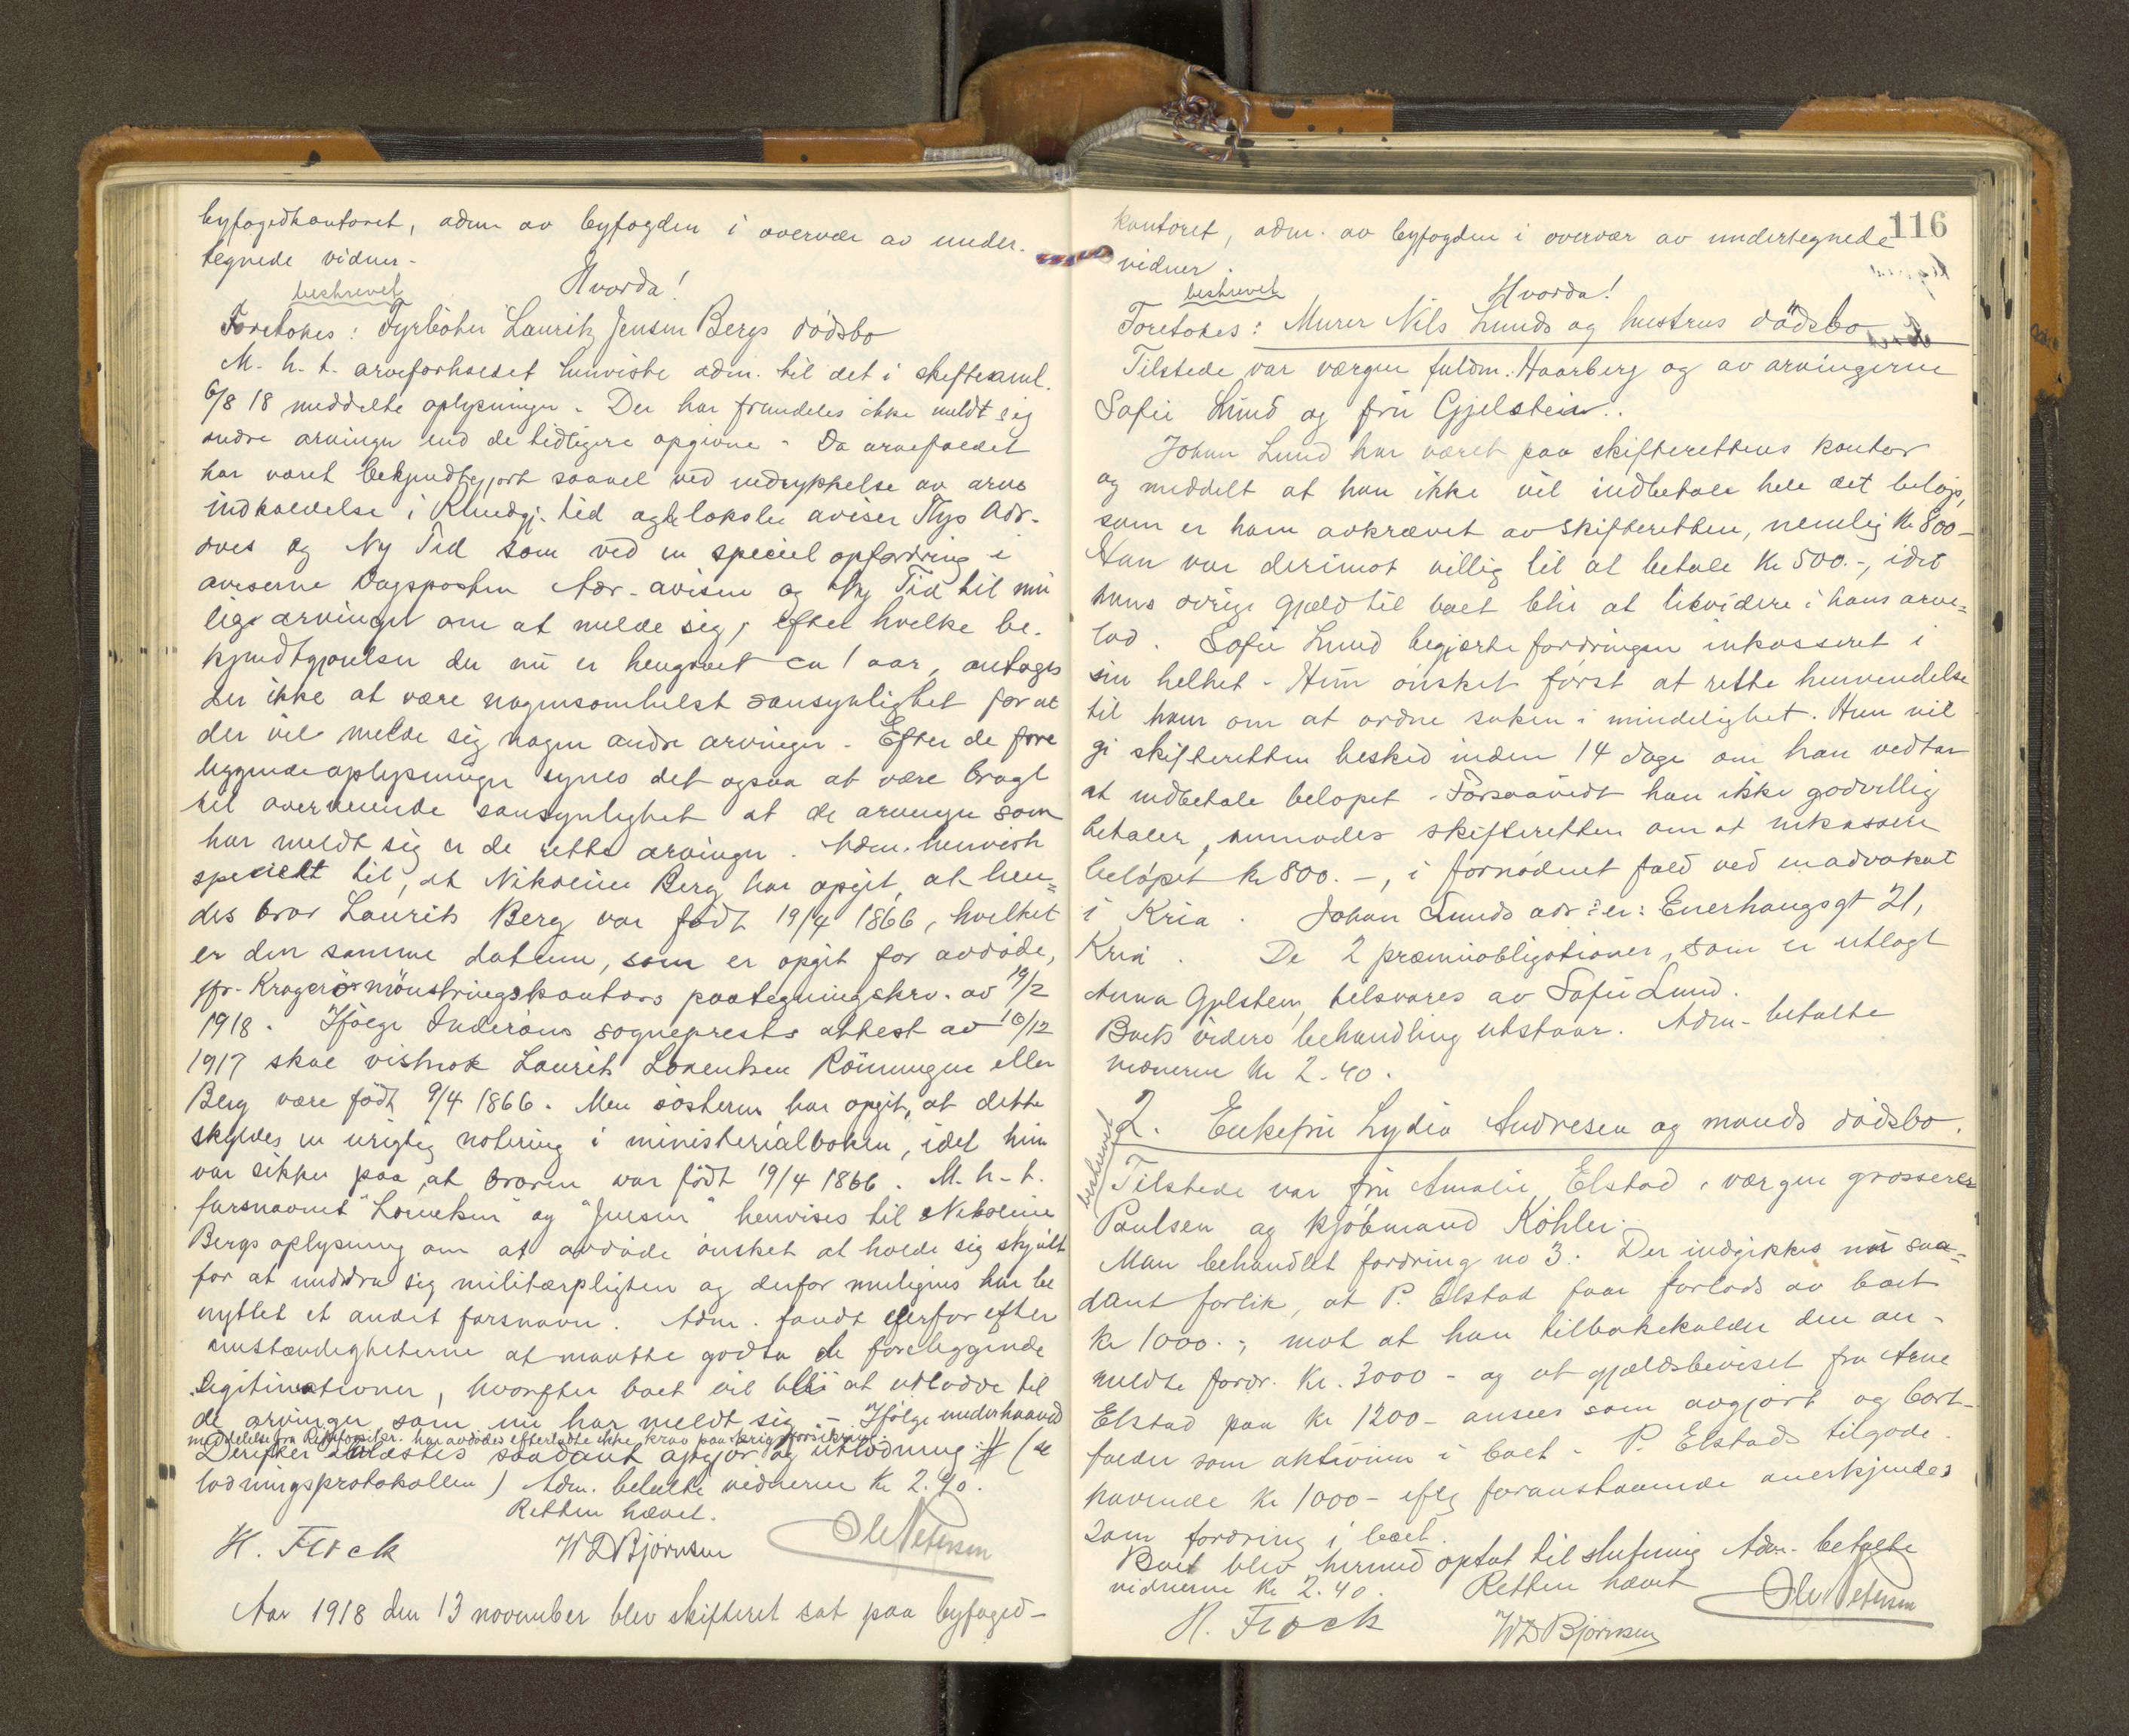 byfogedkontoret, adm av byfogden i overvær av under-
tegnede vidner.
Hvorda!
beskrevet
Foretokes: Fyrbøter Lauritz Jensen Bergs dödsbo
M. h. t. arveforholdet henviste adm. til det i skiftesaml.
6/8 18 meddelte oplysninger. Der har fremdeles ikke meldt sig
andre arvinger end de tidligere opgivne. Da arvefaldet
har været bekjendtgjort saavel ved indrykkelse av arve
indkaldelse i Kundgj. tid og de lokale aviser Thjs Adr.
aves og Ny Tid som ved en speciel opfordring i
aviserne Dagsposten Adr-avisen og Ny Tid til mu
lige arvinger om at melde sig, efter hvilke be-
kjendtgjørelser der nu er hengaaet ca 1 aar, antages
der ikke at være nogensomhelst sansynlighet for at
der vil melde sig nogen andre arvinger. Efter de fore
liggende oplysninger synes det ogsaa at være bragt
til overveiende sansynlighet at de arvinger som
har meldt sig er de rette arvinger. Adm. henviste
specielt til, at Nikoline Berg har opgit, at hen=
des bror Laurits Berg var født 19/4 1866, hvilket
er den samme datum, som er opgit for avdöde,
jfr. Kragerö mönstringskontors paategningskrv. av 19/2
1918. Ifölge Inderöens sogneprests attest av 10/12
1917 skal vistnok Laurit Lorentsen Rönningen eller
Berg være födt 9/4 1866. Men sösteren har opgit, at dette
skyldes en urigtig notering i ministerialboken, idet hun
var sikker paa, at broren var födt 19/4 1866. M. h. t.
farsnavnet "Lorentsen" og "Jensen" henvises til Nikoline
Bergs oplysning om at avdöde önsket at holde sig skjult
for at unddra sig militærpligten og derfor muligens har be
nyttet et andet farsnavn. Adm. fandt derfor efter
omstændigheterne at maatte godta de foreliggende
legitimationer, hvorefter boet vil bli at utlodde til
de arvinger som nu har meldt sig. - Ifölge underhaands
meddelelse fra Riksforsikr. har avdödes efterladte ikke krav paa krigsforsikring.
Derefter saadant opgjør og utlodning: # (se
lodningsprotokollen) Adm. betalte vidnerne Kr 2.40.
Retten hævet.
H. Flock W D Bjørnsen Ole Petersen
Aar 1918 den 13 november blev skifteret sat paa byfoged-
116
kontoret, adm. av byfogden i overvær av undertegnede
vidner.
Hvorda!
beskrevet
Foretokes: Murer Nils Lunds og hustrus dödsbo
Tilstede var værgen fuldm. Haarberg og av arvingerne
Sofie Lund og fru Gjelstein.
Johan Lund har været paa skifterettens kontor
og meddelt at han ikke vil indbetale hele det belöp,
som er ham avkrævet av skifteretten, nemlig Kr 800-
Han var derimot villig til at betale Kr 500.-, idet
hans övrige gjæld til boet blir at likvidere i hans arve=
lod. Sofie Lund begjærte fordringen inkasseret i
sin helhet. Hun önsket först at rette henvendelse
til ham om at ordne saken i mindelighet. Hun vil
gi skifteretten besked inden 14 dage om han vedtar
at indbetale belöpet. Forsaavidt han ikke godvillig
betaler, anmodes skifteretten om at inkassere
belöpet kr 800.-, i fornödent fald ved en advokat
i Kria. Johan Lunds adr: er: Enerhaugsgt 21,
Kria. De 2 præmieobligationer, som er utlagt
Anna Gjelstein, tilsvares av Sofie Lund.
Boets videre behandling utstaar. Adm. betalte
vidnerne Kr 2.40.
beskrevet
2. Enkefru Lydia Andresen og mands dödsbo.
Tilstede var fru Amalie Elstad, værgen grosserer
Paulsen og kjöbmand Köhler.
Man behandlet fordring no 3. Der indgikkes nu saa=
dant forlik, at P. Elstad faar forlods av boet
kr 1000.-, mot at han tilbakekalder den an-
meldte fordr. Kr. 3000 - og at gjældsbeviset fra Arne
Elstad paa Kr 1200- ansees som avgjort og bort-
falder som aktivum i boet. P. Elstads tilgode-
havende Kr 1000- eftg foranstaaende anerkjendes
som fordring i boet.
Boet blev hermed optat til slutning Adm. betalte
vidnerne Kr 2.40. Retten hævet
H. Flock W D Bjørnsen Ole Petersen